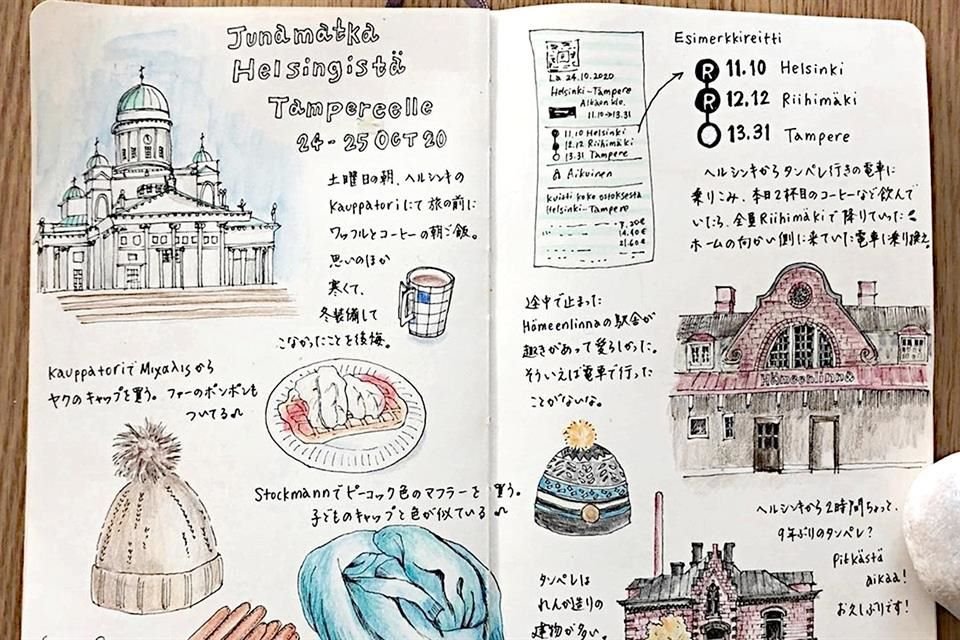 Junamatka
Helsingistä
Tampereelle
24-25 OCT 20
土曜日の朝、ヘルシンキの
Kauppatoriにて旅の前に
ワッフルとコーヒーの朝ご飯。
思いのほか
寒くて、
冬装備して
こなかったことを後悔。
KauppatoriでMιχαλιςから
ヤクのキャップを買う。ファーのポンポンも
ついてる♫
Stockmannでピーコック色のマフラーを買う。
子どものキャップと色が似ている♫
La 24.10.2020
Helsinki-Tampere
Alkaen klo.
11.10→13.31
11.10 Helsinki
12.12 Riihimäki
13.31 Tampere
Aikuinen
Kuitti koko ostoksesta
Helsinki-Tampere
Esimerkkireitti
R 11.10 Helsinki
R 12.12 Riihimäki
13.31 Tampere
ヘルシンキからタンペレ行きの電車に
乗りこみ、本日2杯目のコーヒーなど飲んで
いたら、全員Riihimäkiで降りていった!
ホームの向かい側に来ていた電車に乗り換え。
途中で止まった
Hämeenlinnaの駅舎が
趣きがあって愛らしかった。
そういえば電車で行った
ことがないな。
Hämeenlinna
ヘルシンキから2時間ちょって、
9年ぶりのタンペレ?
Pitkästä
aikaa!
お久しぶりです!
タンペレは
れんが造りの
建物が多い。